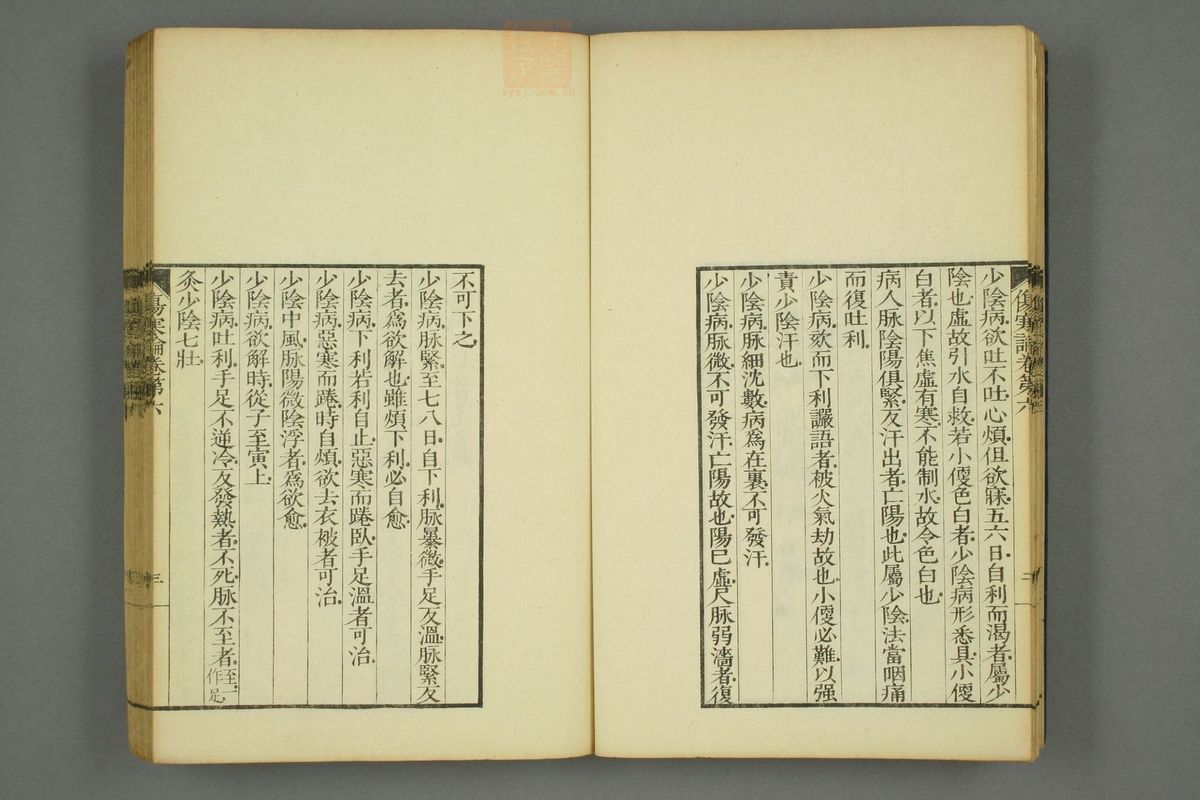 少陰病欲吐不吐心煩但欲寐五六日自利而渴者屬少
陰也虛故引水自救若小便色白者少陰病形悉具小便
白者以下焦虛有寒不能制水故令色白也
病人脉陰陽俱緊反汗出者亡陽也此屬少陰法當咽痛
而復吐利
少陰病欬而下利讝語者被火氣劫故也小便必難以强
責少陰汗也
少陰病脉細沈數病爲在裏不可發汗
少陰病脉微不可發汗亡陽故也陽已虛尺脉弱濇者復
不可下之
少陰病脉緊至七八日自下利脉暴微手足反溫脉緊反
去者爲欲解也雖煩下利必自愈
少陰病下利若利自止惡寒而踡臥手足溫者可治
少陰病惡寒而踡時自煩欲去衣被者可治
少陰中風脉陽微陰浮者爲欲愈
少陰病欲解時從子至寅上
少陰病吐利手足不逆冷反發熱者不死脉不至者至一作足
灸少陰七壯
傷寒論卷第六
三
zysj.com.cn